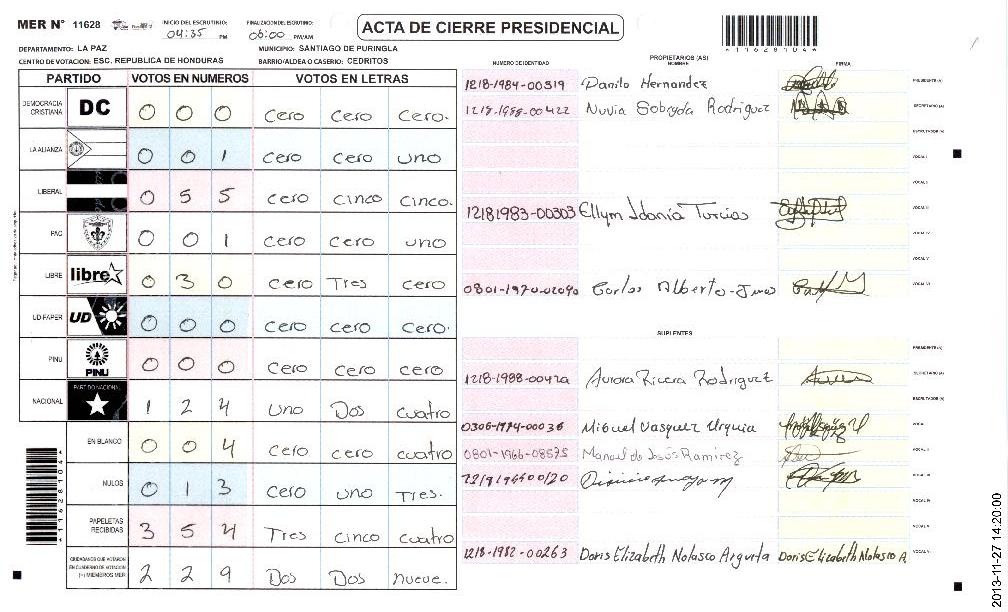 MER N° 11628
INICIO DEL ESCRUTINIO: 04:35 PM
FINALIZACION DEL ESCRUTINIO: 06:00 PM/AM
ACTA DE CIERRE PRESIDENCIAL
11628104
DEPARTAMENTO: LA PAZ
MUNICIPIO: SANTIAGO DE PURINGLA
CENTRO DE VOTACION: ESC. REPUBLICA DE HONDURAS
BARRIO/ALDEA O CASERIO: CEDRITOS
PARTIDO VOTOS EN NUMEROS VOTOS EN LETRAS
DEMOCRACIA CRISTIANA DC 0 0 0 cero cero cero.
LA ALIANZA 0 0 1 cero cero uno
LIBERAL 0 5 5 cero cinco cinco.
PAC 0 0 1 cero cero uno
LIBRE libre 0 3 0 cero Tres cero
UD FAPER UD 0 0 0 cero cero cero.
PINU PINU 0 0 0 cero cero cero
NACIONAL PARTIDO NACIONAL 1 2 4 uno Dos cuatro
EN BLANCO 0 0 4 cero cero cuatro
NULOS 0 1 3 cero uno Tres.
PAPELETAS RECIBIDAS 3 5 4 Tres cinco cuatro
CIUDADANOS QUE VOTARON EN CUADERNO DE VOTACION (+) MIEMBROS MER 2 2 9 Dos Dos nueve.
11628104
NUMERO DE IDENTIDAD
PROPIETARIOS (AS)
NOMBRE
FIRMA
1218-1984-00319 Danilo Hernandez PRESIDENTE (A)
1218-1988-00422 Nuvia Sobeyda Rodriguez SECRETARIO (A)
ESCRUTADOR (A)
VOCAL I
VOCAL II
12181983-00303 Ellym Idania Turcios VOCAL III
VOCAL IV
VOCAL V
Carlos Alberto VOCAL VI
SUPLENTES
PRESIDENTE (A)
Aurora Rivera Rodriguez SECRETARIO (A)
ESCRUTADOR (A)
0306-1974-00036 Miguel Vasquez Urquia VOCAL I
0801-1966-08575 Manuel de Jesús Ramirez VOCAL II
VOCAL III
VOCAL IV
VOCAL V
1218-1982-00263 Doris Elizabeth Nolasco Argueta Doris Elizabeth Nolasco A VOCAL VI
2013-11-27 14:20:00